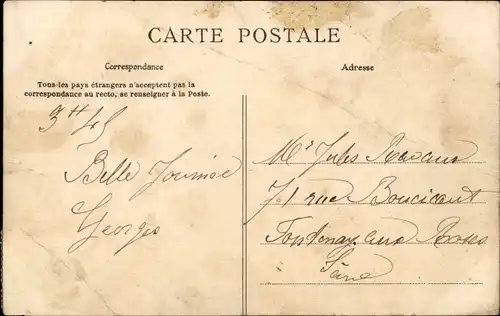 CARTE POSTALE
Correspondance
Adresse
Tous les pays étrangers n'acceptent pas la
correspondance au recto, se renseigner à la Poste.
3H45
Belle Journée
Georges
Mr Jules
71 rue Boucicaut
Fontenay aux Roses
Seine